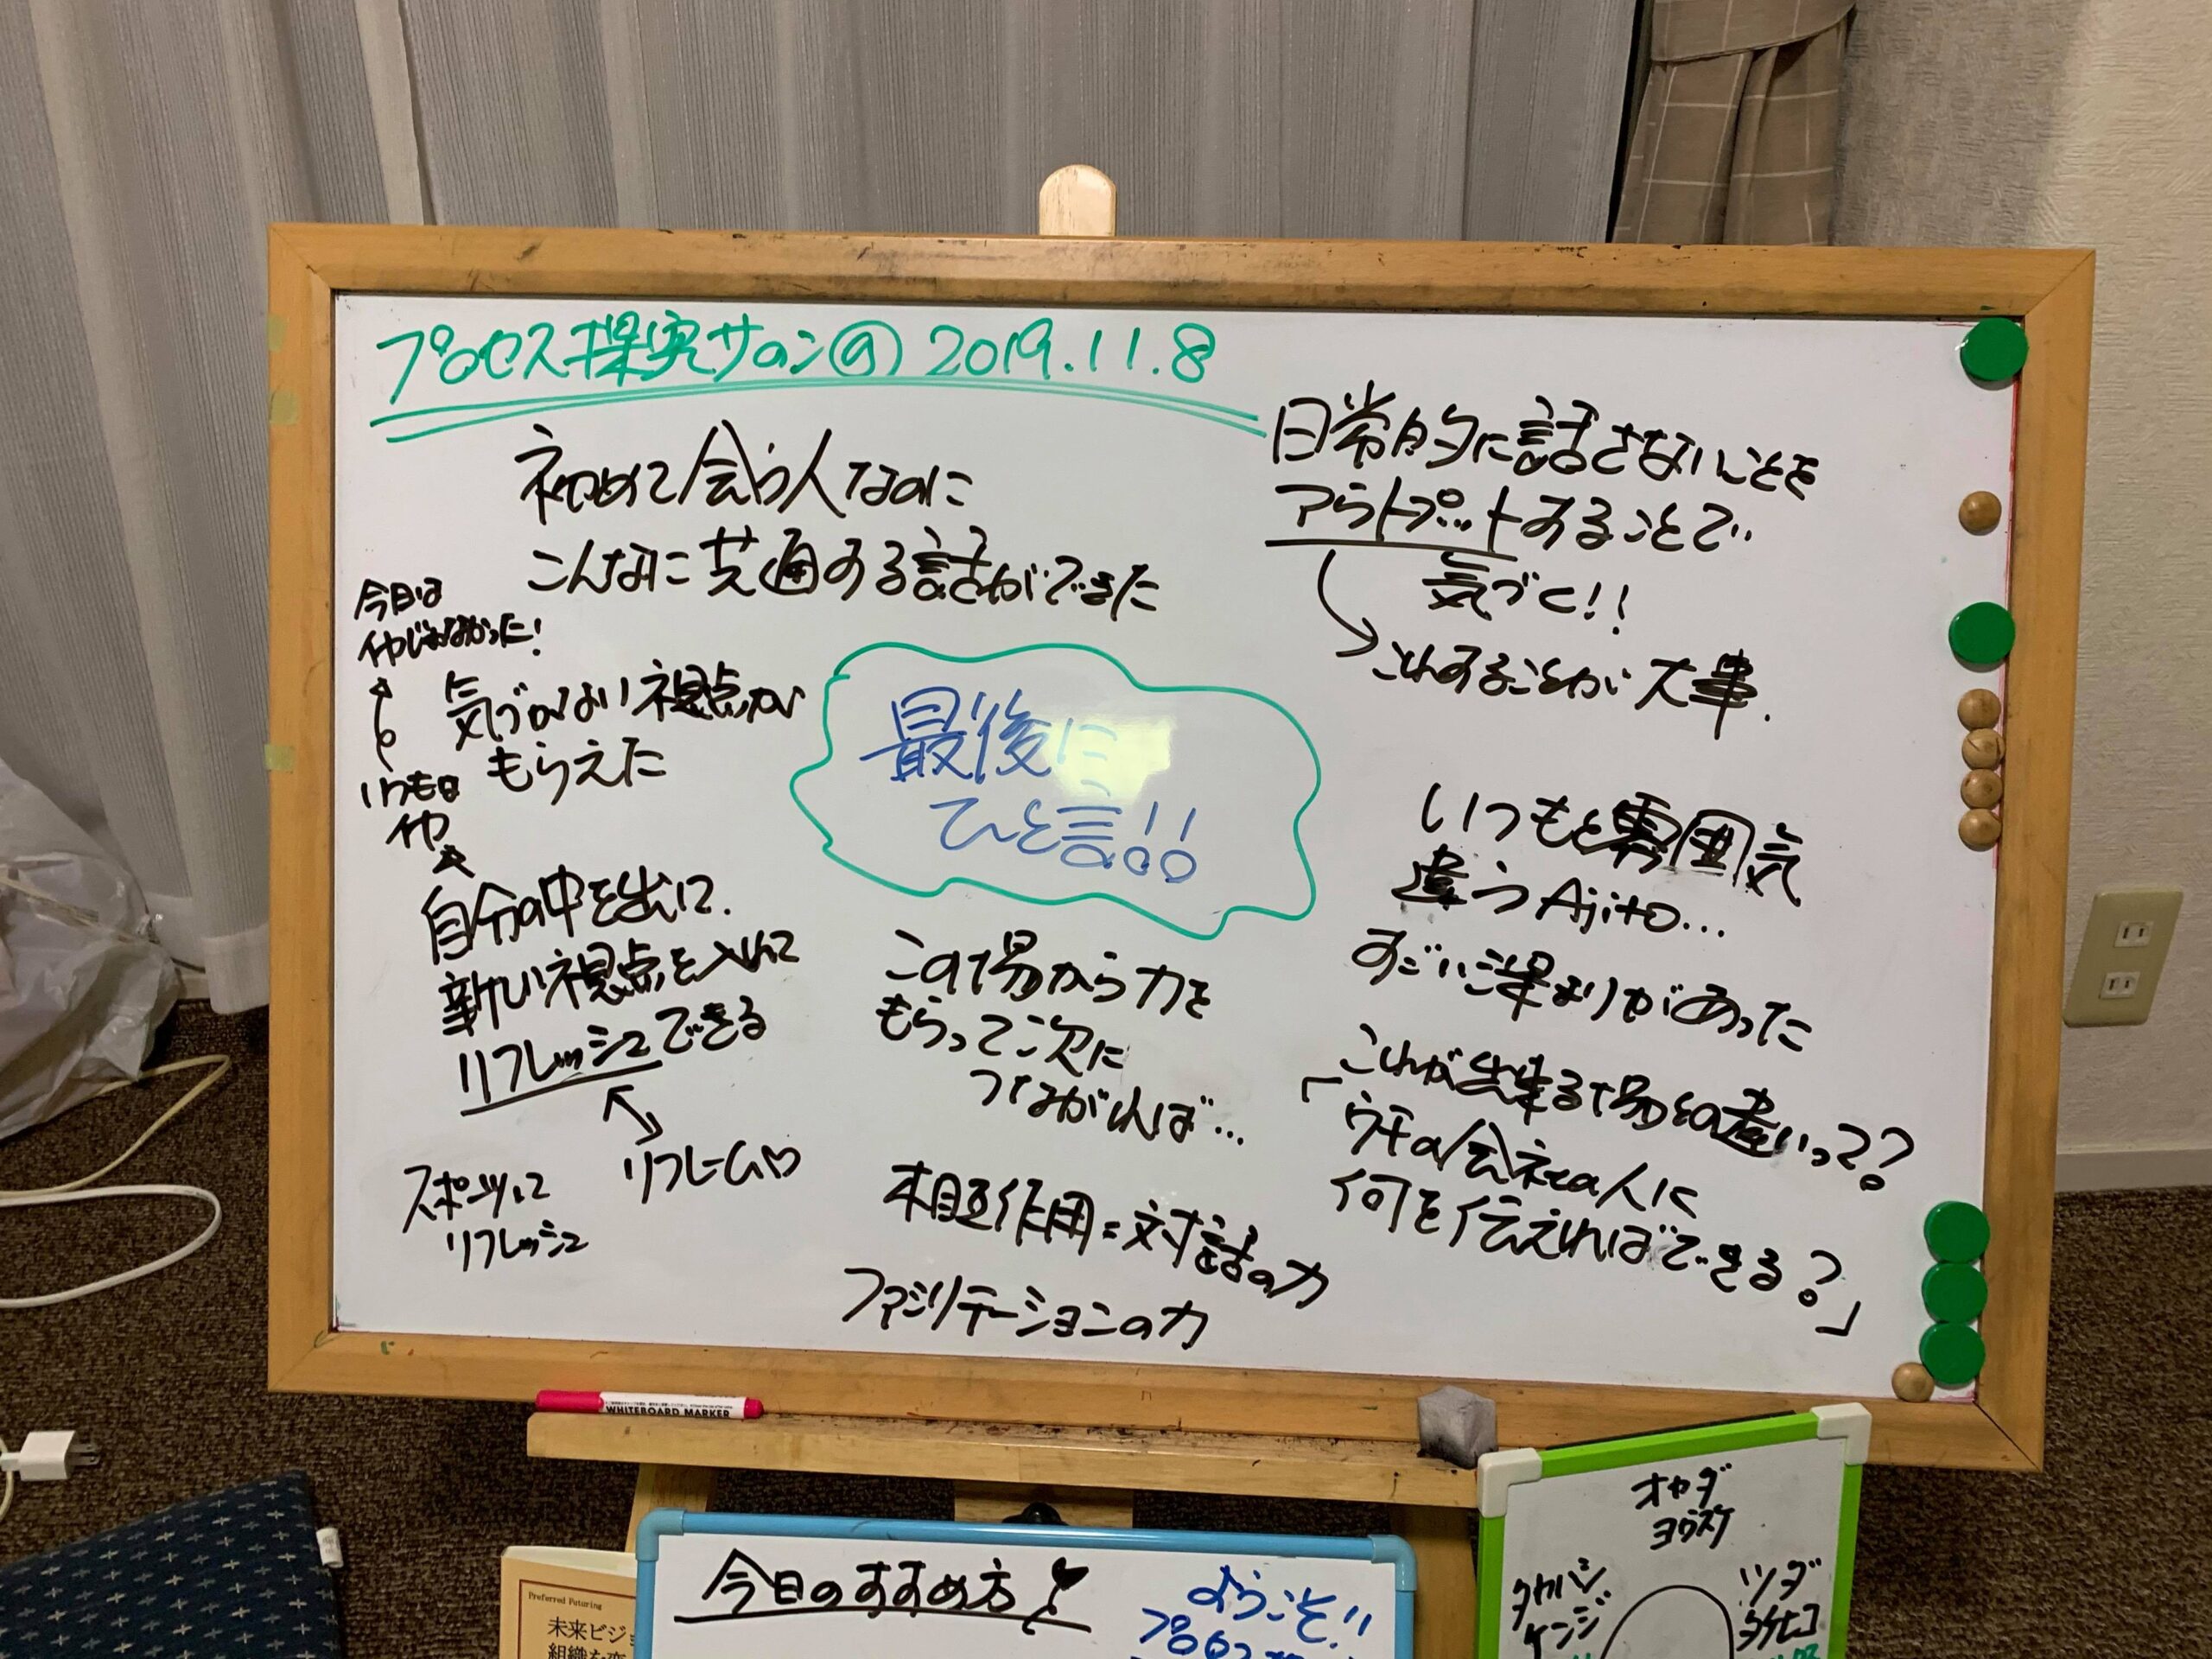 プロセス探究サロン⑨ 2019.11.8
初めて会う人なのに
こんなに共通する話ができた
今日は
イヤじゃなかった!
気づかない視点が
もらえた
いつもは
イヤ
自分の中を出して、
新しい視点を入れて
リフレッシュできる
リフレーム♡
スポーツって
リフレッシュ
最後に
ひと言!!
この場から力を
もらって次に
つながれば…
相互作用=対話の力
ファシリテーションの力
日常的に話さないことを
アウトプットすることで
気づく!!
これすることが大事.
いつもと雰囲気
違うAjito…
すごい深まりがあった
これが出来る場との違いって?
「ウチの会社の人に
何を伝えればできる?」
WHITEBOARD MARKER
今日のすすめ方
ようこそ!!
プロセス
Preferred Futuring
未来ビジ
組織を変
オヤダ
ヨウスケ
タカハシ
ケンジ
ツダ